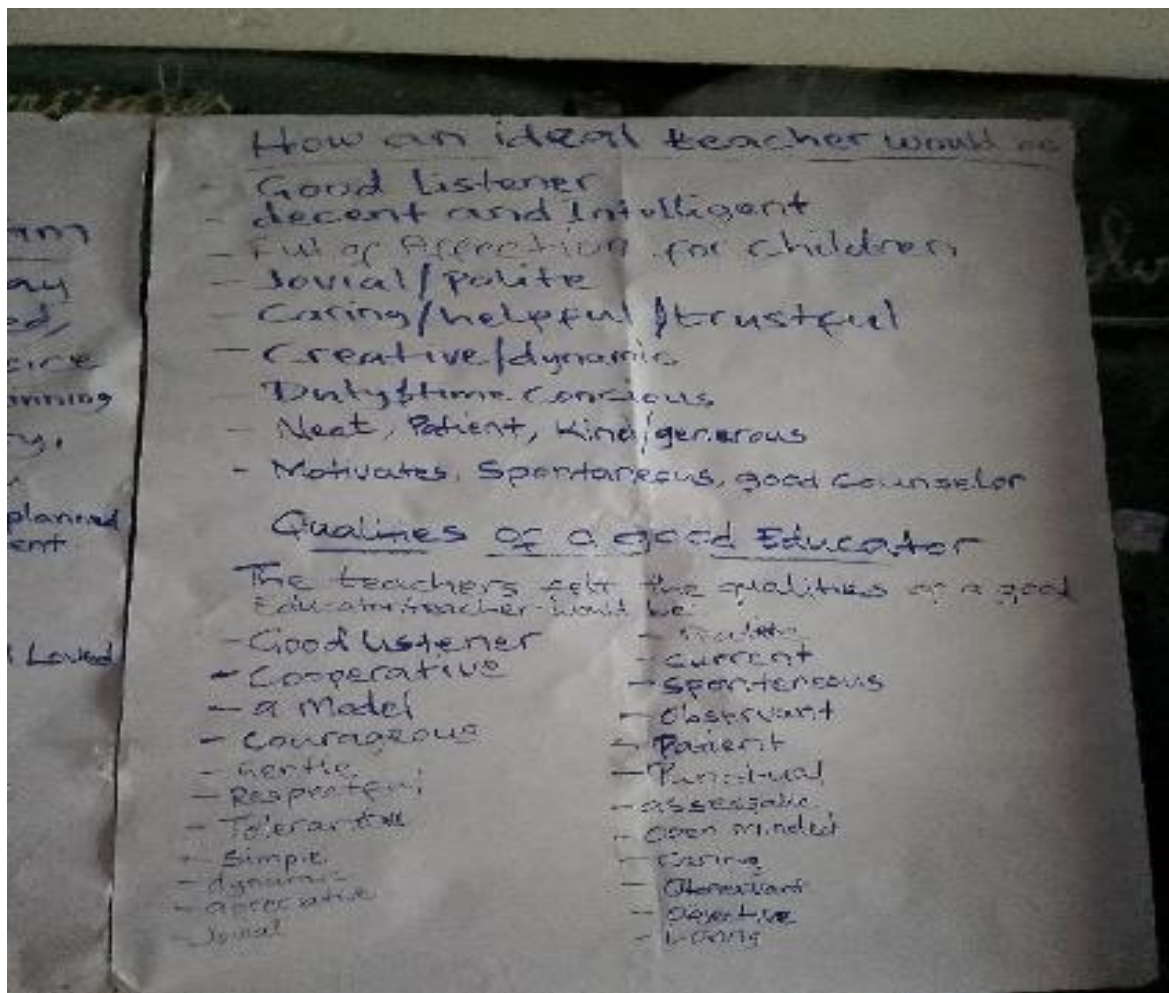 How an ideal teacher would be
- Good listener
- decent and Intelligent
- Full of Affection for children
- Jovial/Polite
- Caring/helpful/trustful
- Creative/dynamic
- Duty/time Conscious
- Neat, Patient, Kind/generous
- Motivates, Spontaneous, good Counselor
Qualities of a good Educator
The teachers felt the qualities of a good
Educator/teacher would be
- Good listener
- Cooperative
- a Model
- Courageous
- Gentle
- Respectful
- Tolerant
- Simple
- dynamic
- apreciative
- Jovial
- current
- Sponteneous
- Observant
- Patient
- Punctual
- assessable
- Open minded
- Caring
- Observant
- Objective
- Loving
planned
ent
Loved